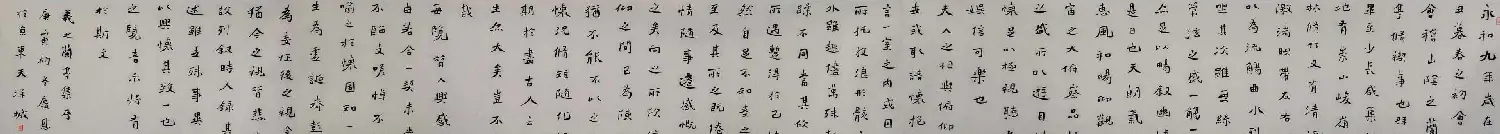 永和九年歲在
丑暮春之初會
會稽山陰之蘭
亭脩禊事也群
畢至少長咸集
地有崇山峻嶺
林脩竹又有清
激湍暎帶左右
以為流觴曲水列
坐其次雖無絲
管弦之盛一觴一
亦足以暢叙幽
是日也天朗氣
惠風和暢仰觀
宙之大俯察品
之盛所以遊目
懷足以極視聽
娛信可樂也
夫人之相與俯仰
世或取諸懷抱
言一室之內或因
所託放浪形骸
外雖趣舍萬殊
躁不同當其欣
所遇暫得於己
然自足不知老之
至及其所之既倦
情隨事遷感慨
之矣向之所欣
仰之間已為陳
猶不能不以之
懷況脩短隨化
期於盡古人云
生亦大矣豈不
哉
每覽昔人興感
由若合一契未
不臨文嗟悼不
喻之於懷固知一
生為虛誕齊彭
為妄作後之視今
猶今之視昔悲
故列叙時人錄其
述雖世殊事異
以興懷其致一也
之覽者亦將有
於斯文
羲之蘭亭集序
庚寅初冬
東天津城